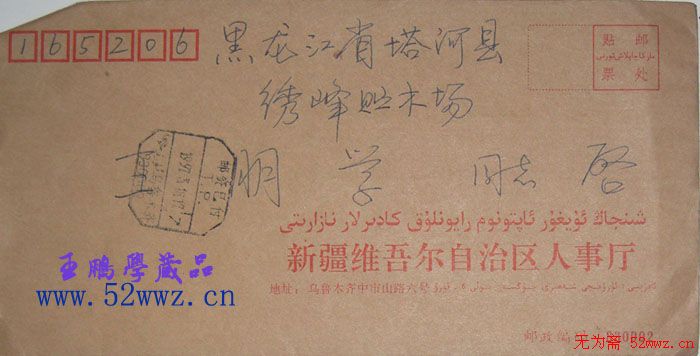 165206
黑龙江省塔河县
贴 邮
票 处
绣峰贮木场
王明学 同志 启
شىنجاڭ ئۇيغۇر ئاپتونوم رايونلۇق كادىرلار نازارىتى
新疆维吾尔自治区人事厅
地址：乌鲁木齐中山路六号
王鹏學藏品
www.52wwz.cn
邮政编码：830002
无为斋 52wwz.cn